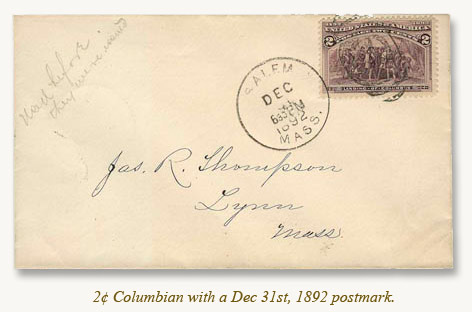 Used before
they were issued
SALEM
DEC
31
630PM
1892
MASS.
UNITED STATES OF AMERICA
2 2
LANDING OF COLUMBUS
Jas. R. Thompson
Lynn
Mass.
2¢ Columbian with a Dec 31st, 1892 postmark.